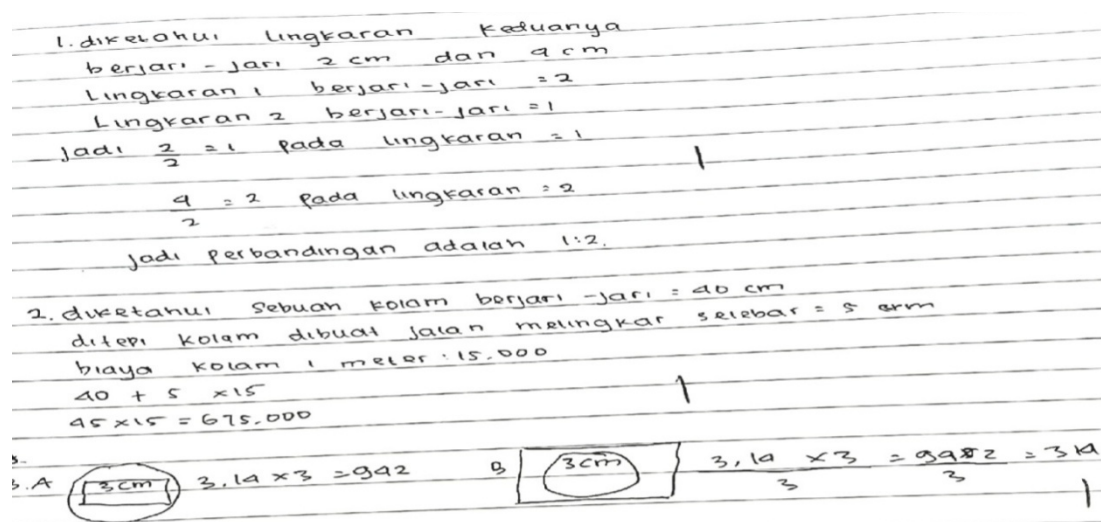 1. diketahui lingkaran keduanya
berjari-jari 2 cm dan 4 cm
Lingkaran 1 berjari-jari = 2
Lingkaran 2 berjari-jari = 1
Jadi 2/2 = 1 pada lingkaran = 1
1
4/2 = 2 pada lingkaran = 2
jadi perbandingan adalah 1:2.
2. diketahui sebuah kolam berjari-jari = 40 cm
ditepi kolam dibuat jalan melingkar selebar = 5
biaya kolam 1 meter : 15.000
40 + 5 x15
1
45 x15 = 675.000
3.A 3cm 3,14 x3 = 942 B 3cm 3,14 x3 / 3 = 942 / 3 = 314
1